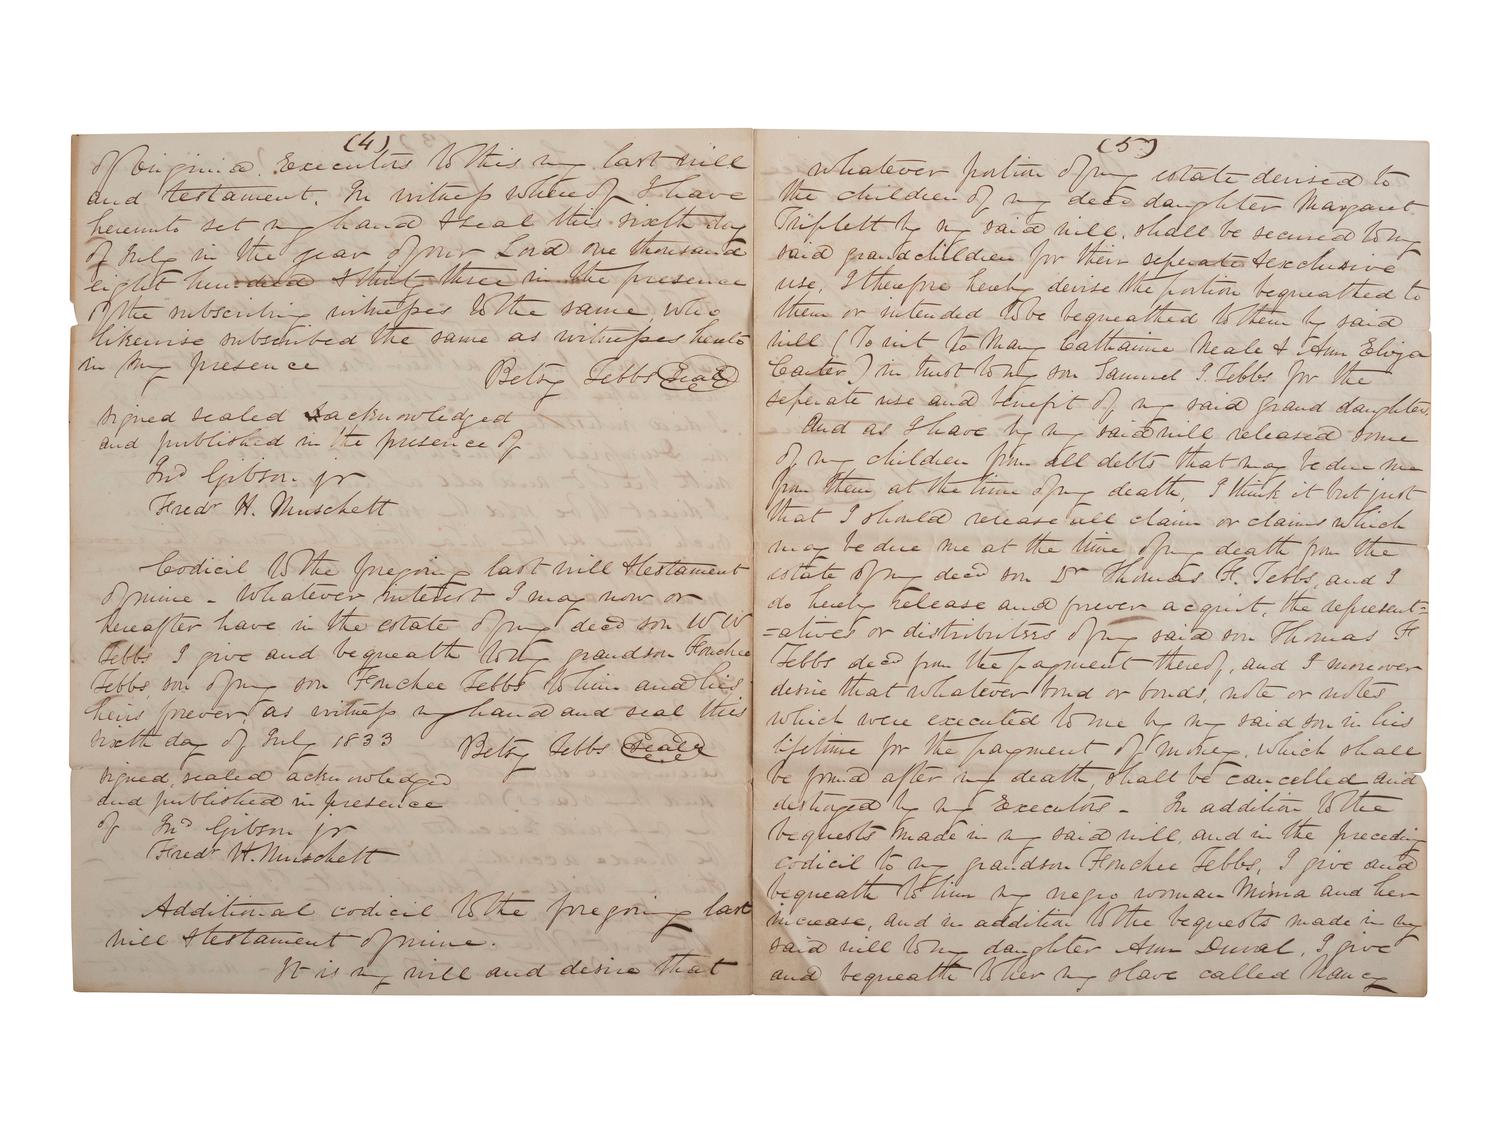 (4)
of Virginia. Executors to this my last will
and testament. In witness whereof I have
hereunto set my hand & seal this sixth day
of July in the year of our Lord one thousand
eight hundred & thirty three in the presence
of the subscribing witnesses to the same, who
likewise subscribed the same as witnesses hereto
in my presence
Betsy Tebbs Seal
signed sealed & acknowledged
and published in the presence of
Jno Gibson jr
Fredk H. Muschett
Codicil to the foregoing last will & testament
of mine - Whatever interest I may now or
hereafter have in the estate of my decd son W W
Tebbs I give and bequeath to my grandson Fouchee
Tebbs, son of my son Fouchee Tebbs to him and his
heirs forever, as witness my hand and seal this
sixth day of July 1833
Betsy Tebbs Seal
signed, sealed acknowledged
and published in presence
of Jno Gibson jr
Fredk H. Muschett
Additional codicil to the foregoing last
will & testament of mine.
It is my will and desire that
(5)
whatever portion of my estate devised to
the children of my decd daughter Margaret
Triplett by my said will, shall be secured to my
said grandchildren for their seperate & exclusive
use, I therefore hereby devise the portion bequeathed to
them or intended to be bequeathed to them by said
will (To wit to Mary Catharine Neale & Ann Eliza
Carter) in trust to my son Samuel J. Tebbs for the
seperate use and benefit of my said grand daughters.
And as I have by my said will released some
of my children from all debts that may be due me
from them at the time of my death, I think it but just
that I should release all claim or claims which
may be due me at the time of my death from the
estate of my decd son Dr Thomas F. Tebbs, and I
do hereby release and forever acquit, the represent=
=atives or distributees of my said son Thomas F
Tebbs decd from the payment thereof, and I moreover
desire that whatever bond or bonds, note or notes
which were executed to me by my said son in his
lifetime for the payment of money, which shall
be found after my death shall be cancelled and
destroyed by my Executors - In addition to the
bequests made in my said will, and in the preceding
codicil to my grandson Fouchee Tebbs, I give and
bequeath to him my negro woman Mima and her
increase, and in addition to the bequests made in my
said will to my daughter Ann Duval, I give
and bequeath to her my slave called Nancy